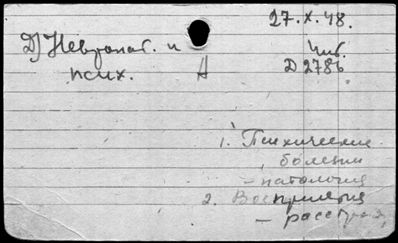 27.X.48.
Д) Невропат. и
псих.
А
Чит.
Д 2786
1. Психические
болезни
— патология
2. Восприятия
— расстр.